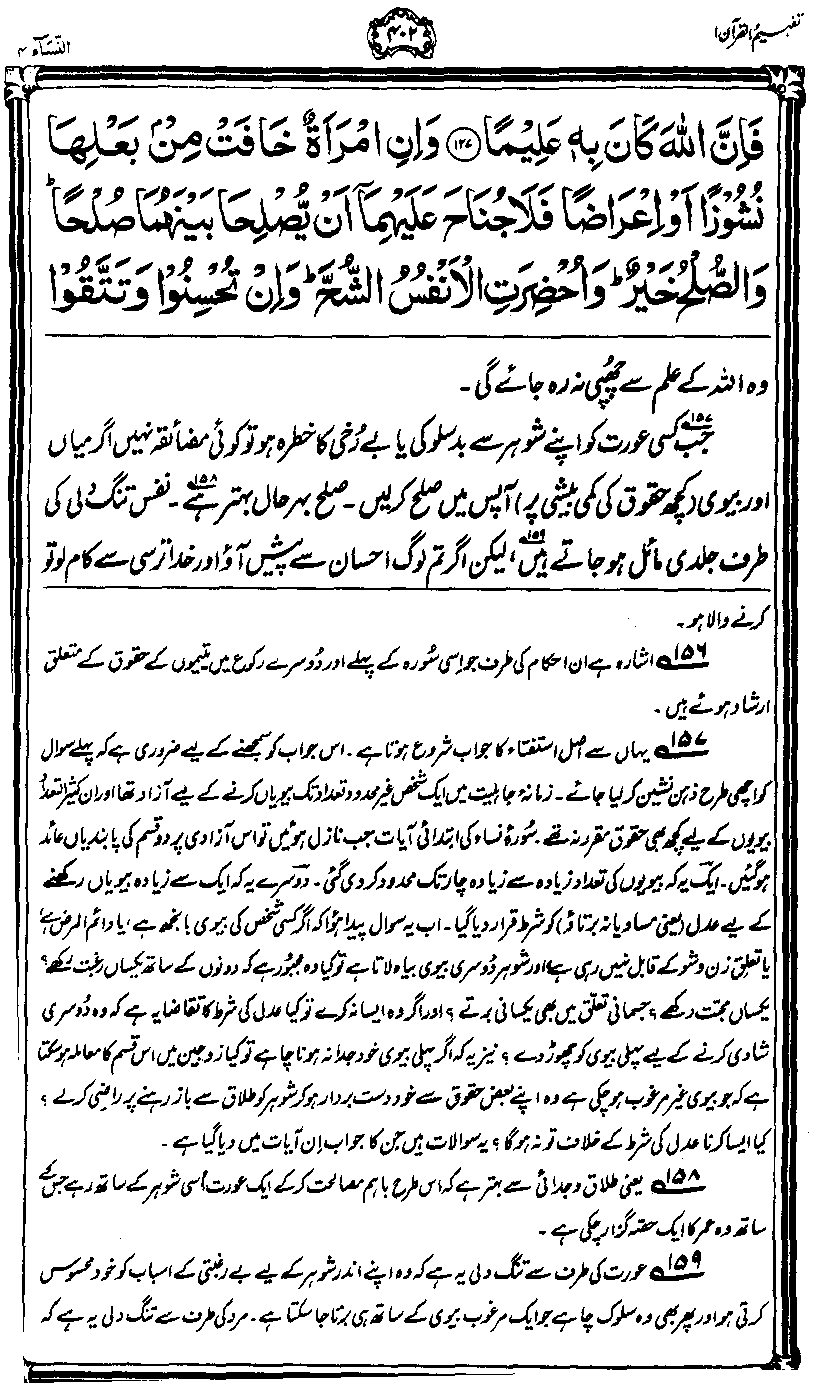 تفہیم القرآن ۱
۴۰۲
النسآء ۴
فَاِنَّ اللّٰهَ كَانَ بِهٖ عَلِيْمًا ﴿۱۲۷﴾ وَاِنِ امْرَاَةٌ خَافَتْ مِنْۢ بَعْلِهَا
نُشُوْزًا اَوْ اِعْرَاضًا فَلَا جُنَاحَ عَلَيْهِمَآ اَنْ يُّصْلِحَا بَيْنَهُمَا صُلْحًا ؕ
وَالصُّلْحُ خَيْرٌ ؕ وَاُحْضِرَتِ الْاَنْفُسُ الشُّحَّ ؕ وَاِنْ تُحْسِنُوْا وَتَتَّقُوْا
وہ اللہ کے علم سے چھُپی نہ رہ جائے گی۔
جب ۱۵۷ کسی عورت کو اپنے شوہر سے بدسلوکی یا بے رُخی کا خطرہ ہو تو کوئی مضائقہ نہیں اگر میاں
اور بیوی (کچھ حقوق کی کمی بیشی پر) آپس میں صلح کر لیں۔ صلح بہرحال بہتر ہے ۱۵۸۔ نفس تنگ دلی کی
طرف جلدی مائل ہو جاتے ہیں ۱۵۹، لیکن اگر تم لوگ احسان سے پیش آؤ اور خدا ترسی سے کام لو تو
کرنے والا ہو۔
۱۵۶ اشارہ ہے ان احکام کی طرف جو اسی سُورہ کے پہلے اور دُوسرے رکوع میں یتیموں کے حقوق کے متعلق
ارشاد ہوئے ہیں۔
۱۵۷ یہاں سے اصل استفتاء کا جواب شروع ہوتا ہے۔ اس جواب کو سمجھنے کے لیے ضروری ہے کہ پہلے سوال
کو اچھی طرح ذہن نشین کر لیا جائے۔ زمانۂ جاہلیت میں ایک شخص غیر محدود تعداد تک بیویاں کرنے کے لیے آزاد تھا اور ان کثیر التعداد
بیویوں کے لیے کچھ بھی حقوق مقرر نہ تھے۔ سُورۂ نساء کی ابتدائی آیات جب نازل ہوئیں تو اس آزادی پر دو قسم کی پابندیاں عائد
ہو گئیں۔ ایک یہ کہ بیویوں کی تعداد زیادہ سے زیادہ چار تک محدود کر دی گئی۔ دوسرے یہ کہ ایک سے زیادہ بیویاں رکھنے
کے لیے عدل (یعنی مساویانہ برتاؤ) کو شرط قرار دیا گیا۔ اب یہ سوال پیدا ہوا کہ اگر کسی شخص کی بیوی بانجھ ہے، یا دائم المرض ہے
یا تعلقِ زن و شو کے قابل نہیں رہی ہے، اور شوہر دُوسری بیوی بیاہ لاتا ہے تو کیا وہ مجبور ہے کہ دونوں کے ساتھ یکساں رغبت رکھے؟
یکساں محبت رکھے؟ جسمانی تعلّق میں بھی یکسانی برتے؟ اور اگر وہ ایسا نہ کرے تو کیا عدل کی شرط کا تقاضا یہ ہے کہ وہ دُوسری
شادی کرنے کے لیے پہلی بیوی کو چھوڑ دے؟ نیز یہ کہ اگر پہلی بیوی خود جدا نہ ہونا چاہے تو کیا زوجین میں اس قسم کا معاملہ ہو سکتا
ہے کہ جو بیوی غیر مرغوب ہو چکی ہے وہ اپنے بعض حقوق سے خود دست بردار ہو کر شوہر کو طلاق سے باز رہنے پر راضی کر لے؟
کیا ایسا کرنا عدل کی شرط کے خلاف تو نہ ہو گا؟ یہ سوالات ہیں جن کا جواب اِن آیات میں دیا گیا ہے۔
۱۵۸ یعنی طلاق و جدائی سے بہتر ہے کہ اس طرح باہم مصالحت کر کے ایک عورت اُسی شوہر کے ساتھ رہے جس کے
ساتھ وہ عمر کا ایک حصّہ گزار چکی ہے۔
۱۵۹ عورت کی طرف سے تنگ دلی یہ ہے کہ وہ اپنے اندر شوہر کے لیے بے رغبتی کے اسباب کو خود محسوس
کرتی ہو اور پھر بھی وہ سلوک چاہے جو ایک مرغوب بیوی کے ساتھ ہی برتا جا سکتا ہے۔ مرد کی طرف سے تنگ دلی یہ ہے کہ